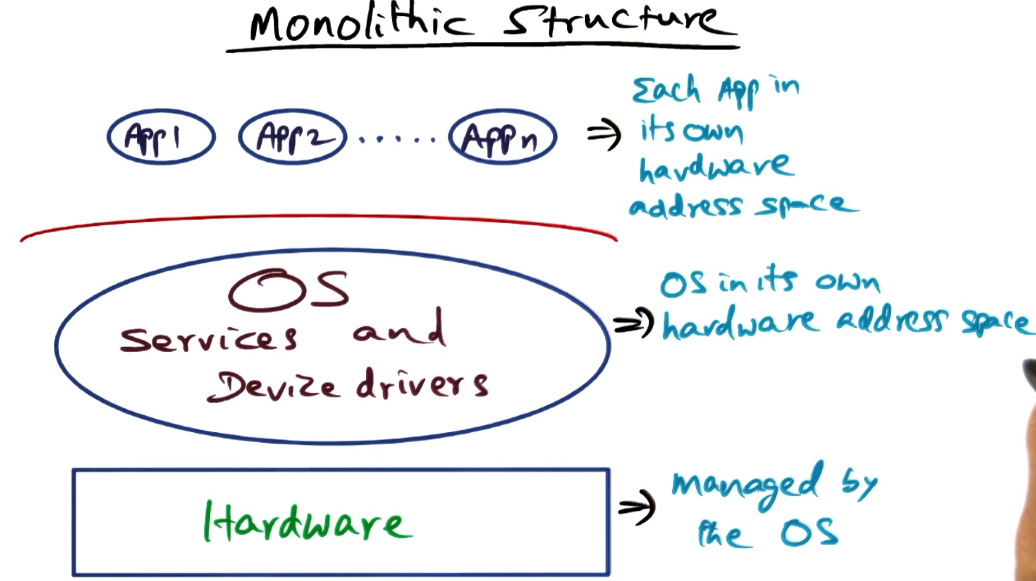 Monolithic Structure
App1 App2 ..... Appn ⇒
Each App in
its own
hardware
address space
OS
Services and
Device drivers
⇒ OS in its own
hardware address space
Hardware
⇒ managed by
the OS